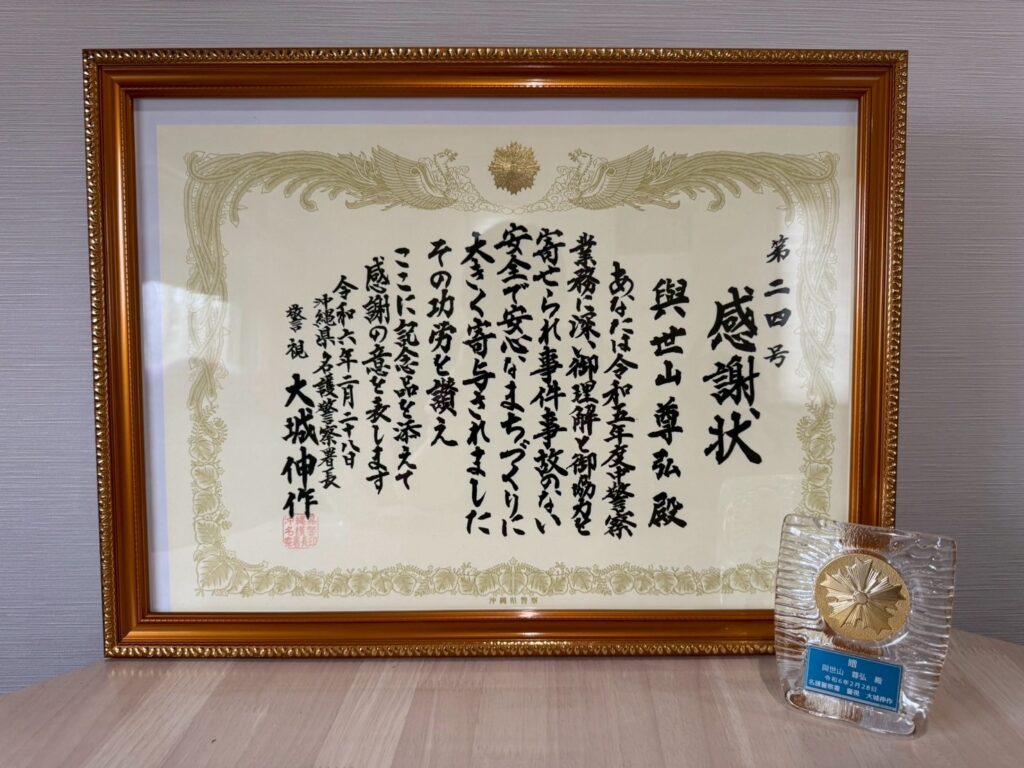 第二四号
感謝状
與世山尊弘殿
あなたは令和五年度中警察
業務に深い御理解と御協力を
寄せられ事件事故のない
安全で安心なまちづくりに
大きく寄与されました
その功労を讃え
ここに記念品を添えて
感謝の意を表します
令和六年二月二十八日
沖縄県名護警察署長
警視 大城伸作
沖縄県警察
贈
與世山 尊弘 殿
令和6年2月28日
名護警察署 警視 大城伸作